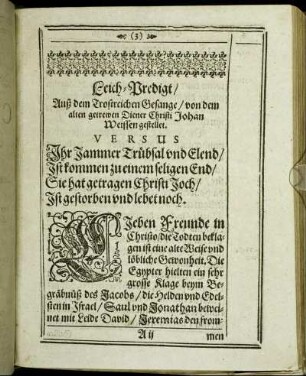 (3)
Leich/Predigt/
Auß dem Trostreichen Gesange/von dem
alten getrewen Diener Christi Johan
Weissen gestellet.
VERSUS
Ihr Jammer Trübsal vnd Elend/
Ist kommen zu einem seligen End/
Sie hat getragen Christi Joch/
Ist gestorben vnd lebet noch.
Jeben Freunde in
Christo/die Todten bekla-
gen ist eine alte Weise vnd
löbliche Gewonheit. Die
Egypter hielten ein sehr
grosse Klage beym Be-
gräbnüß des Jacobs/die Helden vnd Edel-
sten in Israel/Saul vnd Jonathan bewei-
net mit Leide David/Jeremias den from-
A ij
men